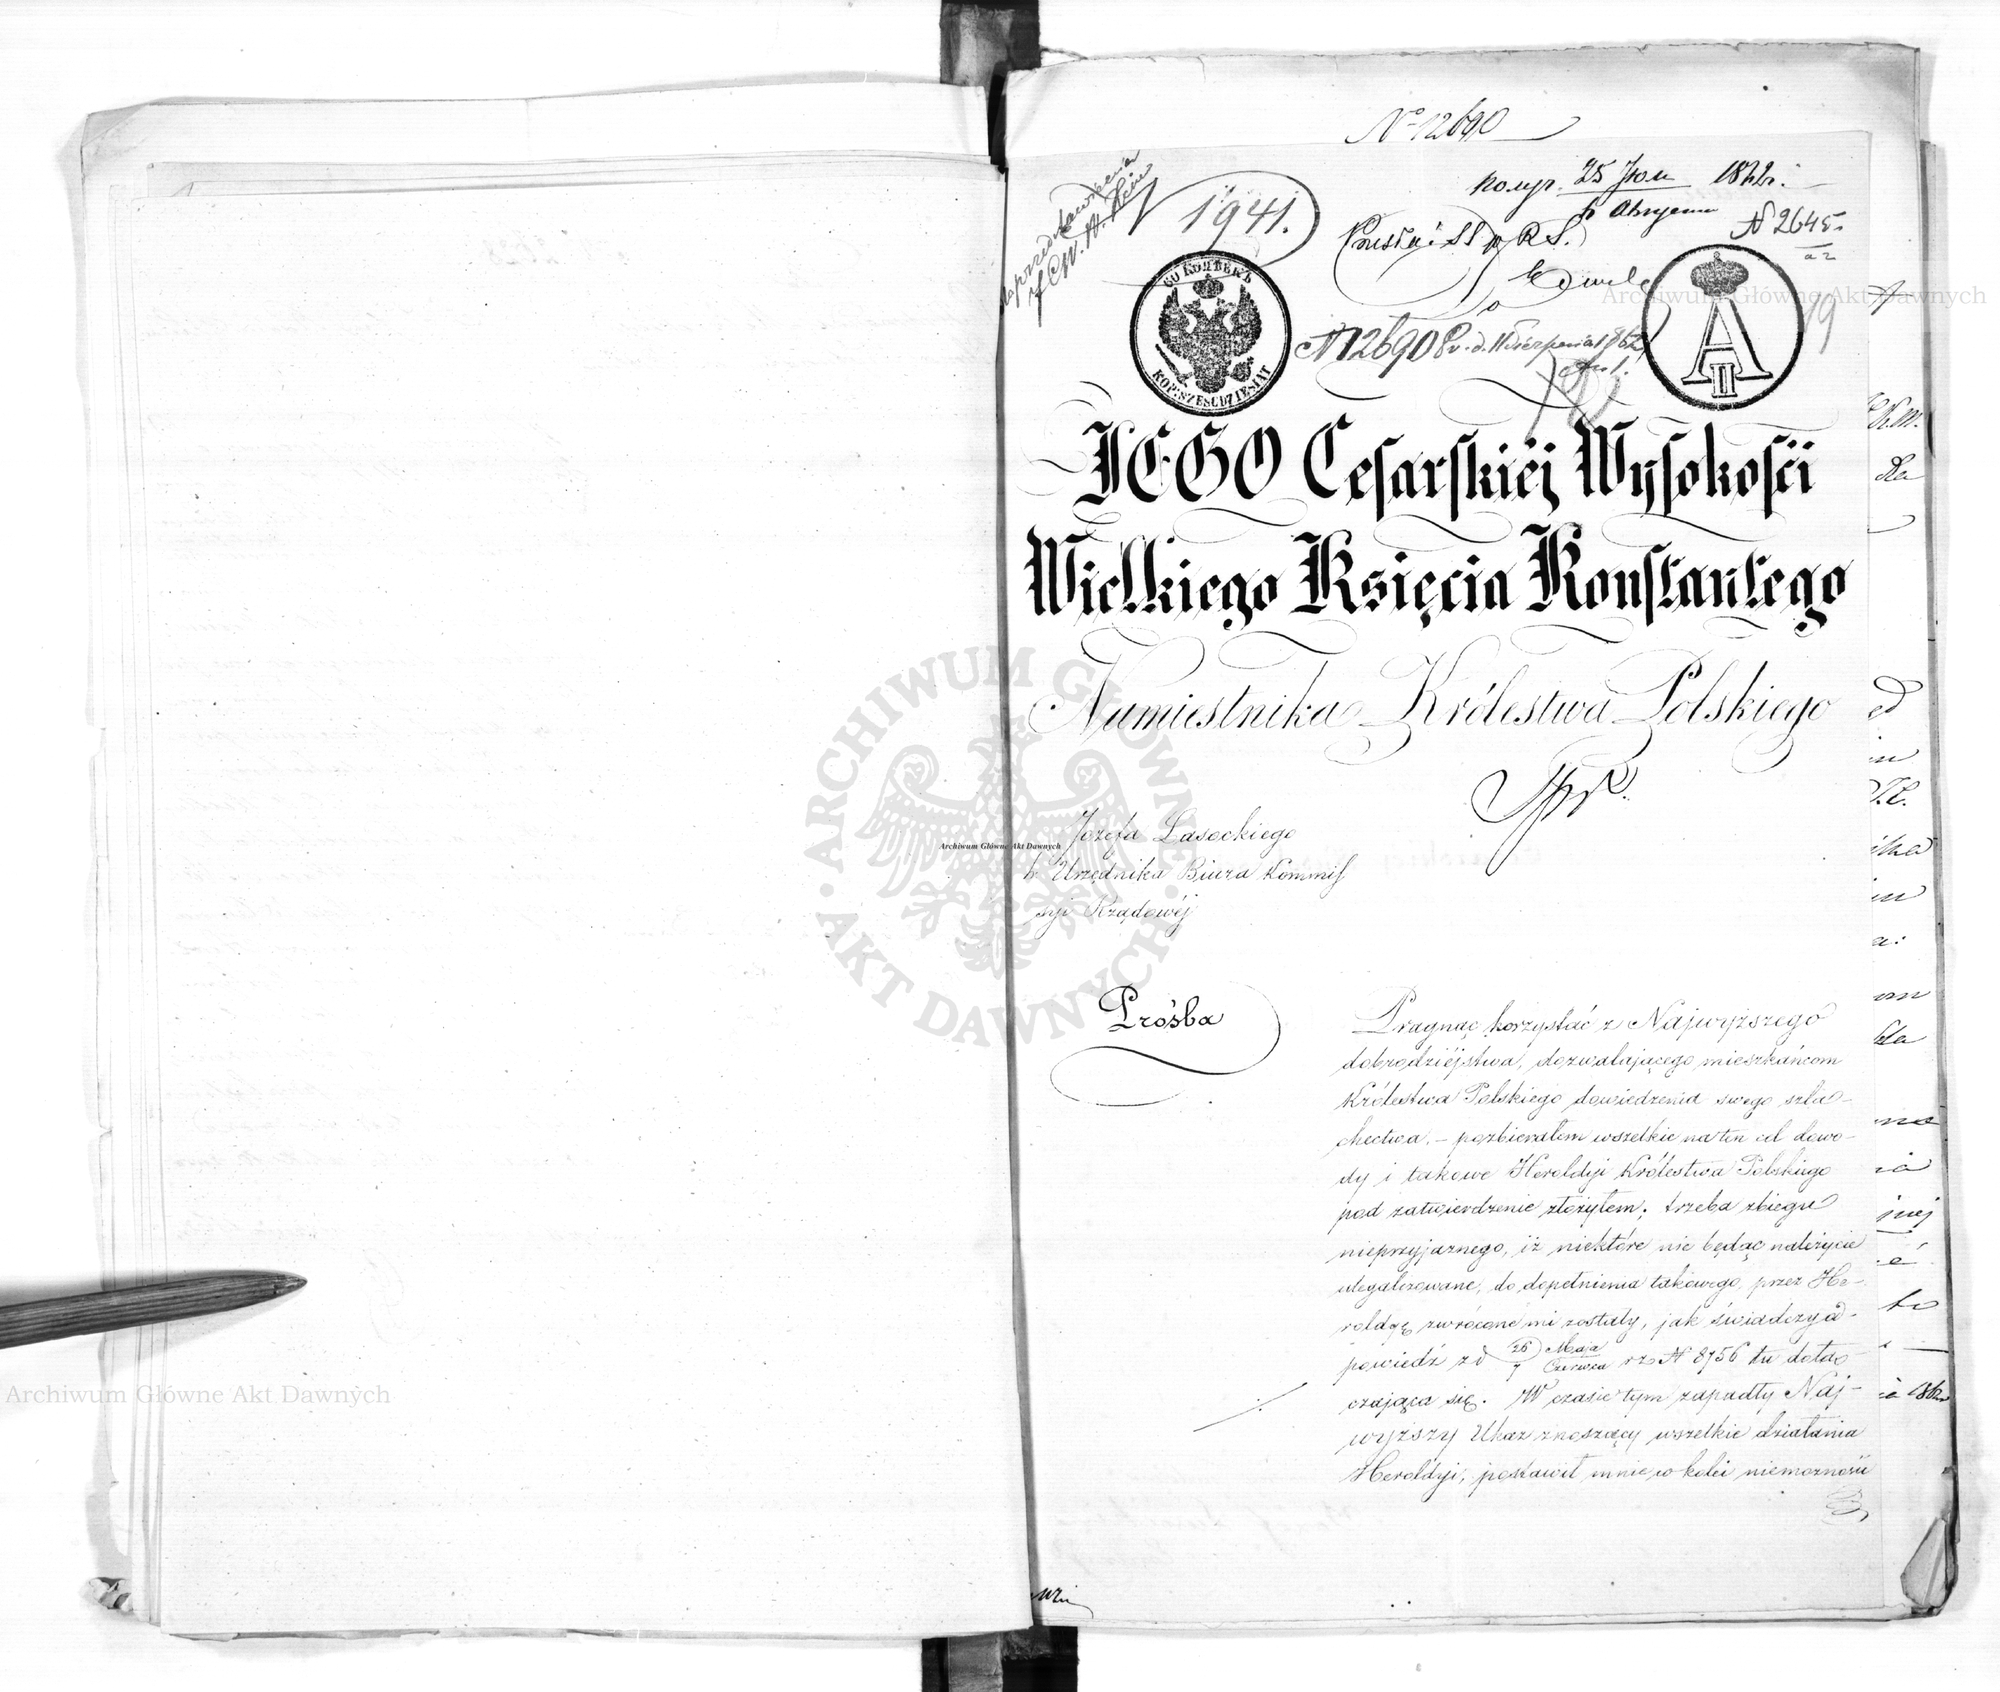 Nº 12690
1941.
25
1862 г.
№ 2645.
60 КОПѢЕКЪ
KOP: SZESCDZIESIĄT
A II
№ 12690 d. 11 Sierpnia 1862
19
JEGO Cesarskiéj Wysokości
Wielkiego Księcia Konstantego
Namiestnika Królestwa Polskiego
Józefa Lasockiego
b. Urzędnika Biura Kommis
syi Rządowéj
Prośba
Pragnąc korzystać z Najwyższego
dobrodziéjstwa, dozwalającego mieszkańcom
Królestwa Polskiego dowiedzenia swego szla-
chectwa, – pozbierałem wszelkie na ten cel dowo-
dy i takowe Heroldyi Królestwa Polskiego
pod zatwierdzenie złożyłem; trzeba zbiegu
nieprzyjaznego, iż niektóre nie będąc należycie
ulegalizowane, do dopełnienia takowego, przez He-
roldyę zwrócone mi zostały, jak świadczy od-
powiedź z d 26 Maja / 7 Czerwca rz № 8756 tu dołą-
czająca się. W czasie tym zapadły Naj-
wyższy Ukaz znoszący wszelkie działania
Heroldyi, postawił mnie w kolei niemożności
ARCHIWUM GŁÓWNE AKT DAWNYCH
Archiwum Główne Akt Dawnych
Archiwum Główne Akt Dawnych
Archiwum Główne Akt Dawnych